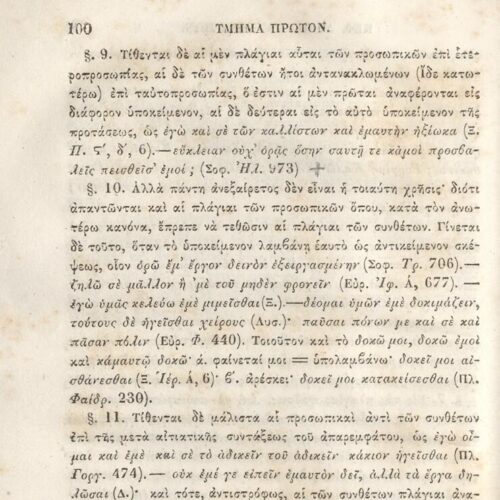 100 ΤΜΗΜΑ ΠΡΩΤΟΝ.
§. 9. Τίθενται δὲ αἱ μὲν πλάγιαι αὗται τῶν προσωπικῶν ἐπὶ ἑτε-
ροπροσωπίας, αἱ δὲ τῶν συνθέτων ἤτοι ἀντανακλωμένων (Ἴδε κατω-
τέρω) ἐπὶ ταὐτοπροσωπίας, ὅ ἐστιν αἱ μὲν πρῶται ἀναφέρονται εἰς
διάφορον ὑποκείμενον, αἱ δὲ δεύτεραι εἰς τὸ αὐτὸ ὑποκείμενον τῆς
προτάσεως, ὡς ἐγὼ καὶ σὲ τῶν καλλίστων καὶ ἐμαυτὴν ἠξίωκα (Ξ.
Π. ς΄, δ΄, 6).— εὔκλειαν οὐχ᾽ ὁρᾷς ὅσην σαυτῇ τε κἀμοὶ προσβα-
λεῖς πεισθεῖσ᾽ ἐμοί; (Σοφ. Ἠλ. 973)
§. 10. Ἀλλὰ πάντη ἀνεξαίρετος δὲν εἶναι ἡ τοιαύτη χρῆσις· διότι
ἀπαντῶνται καὶ αἱ πλάγιαι τῶν προσωπικῶν ὅπου, κατὰ τὸν ἀνω-
τέρω κανόνα, ἔπρεπε νὰ τεθῶσιν αἱ πλάγιαι τῶν συνθέτων. Γίνεται
δὲ τοῦτο, ὅταν τὸ ὑποκείμενον λαμβάνῃ ἑαυτὸ ὡς ἀντικείμενον σκέ-
ψεως, οἷον ὁρῶ ἔμ᾽ ἔργον δεινὸν ἐξειργασμένην (Σοφ. Τρ. 706).—
ζηλῶ σὲ μᾶλλον ἢ ᾽μὲ τοῦ μηδὲν φρονεῖν (Εὐρ. Ἰφ. Α, 677). —
ἐγὼ ὑμᾶς κελεύω ἐμὲ μιμεῖσθαι (Ξ.).—δέομαι ὑμῶν ἐμὲ δοκιμάζειν,
τούτους δὲ ἡγεῖσθαι χείρους (Λυσ.)· παῦσαι πόνων με καὶ σὲ καὶ
πᾶσαν πόλιν (Εὐρ. Φ. 440). Τοιοῦτον καὶ τὸ δοκῶ μοι, δοκῶ ἐμοὶ
καὶ κἀμαυτῷ δοκῶ· ά. φαίνεταί μοι = ὑπολαμβάνω· δοκεῖ μοι αἰ-
σθάνεσθαι (Ξ. Ἱέρ. Α, 6)· β΄. ἀρέσκει· δοκεῖ μοι κατακείσεσθαι (Πλ.
Φαίδρ. 230).
§. 11. Τίθενται δὲ μάλιστα αἱ προσωπικαὶ ἀντὶ τῶν συνθέτων
ἐπὶ τῆς μετὰ αἰτιατικῆς συντάξεως τοῦ ἀπαρεμφάτου, ὡς ἐγὼ οἶ-
μαι καὶ ἐμὲ καὶ σὲ τὸ ἀδικεῖν τοῦ ἀδικεῖν κάκιον ἡγεῖσθαι (Πλ.
Γοργ. 474).— οὐκ ἐμέ γε εἰπεῖν ἐμαυτὸν δεῖ, ἀλλὰ τὰ ἔργα δη-
λῶσαι (Δ.)· καὶ τότε, ἀντιστρόφως, αἱ τῶν συνθέτων πλάγιαι ἀνα-